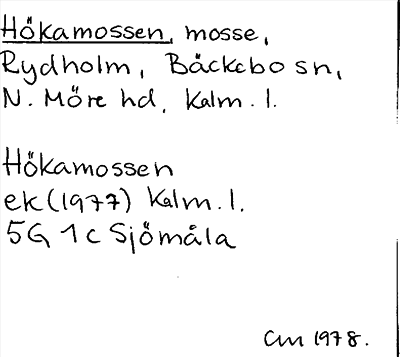 Hökamossen, mosse,
Rydholm, Bäckebo sn,
N. Möre hd, Kalm. l.
Hökamossen
ek (1977) Kalm. l.
5G 1c Sjömåla
CM 1978.